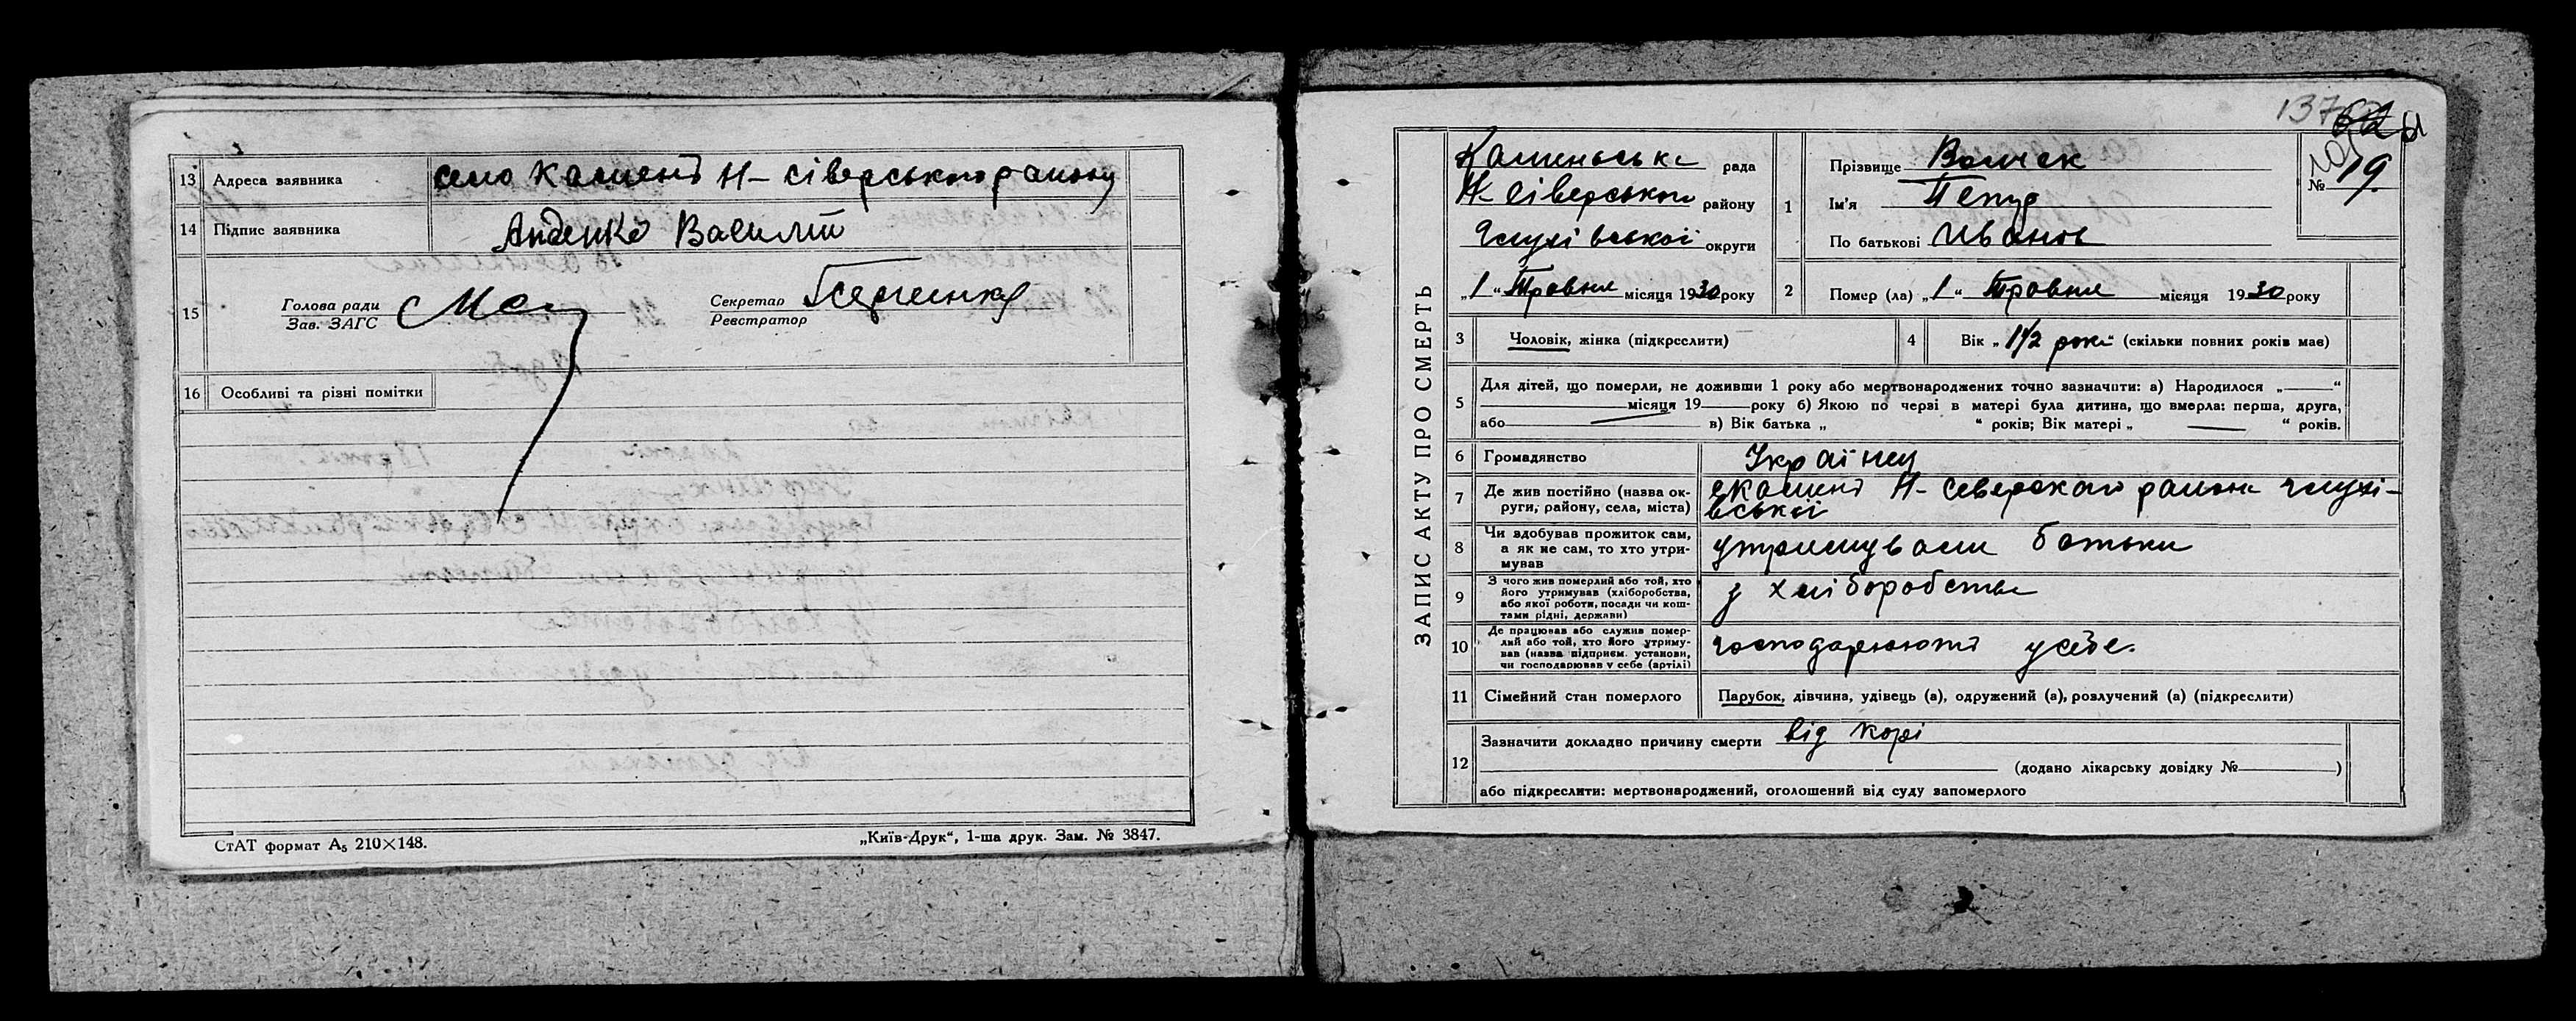 13 Адреса заявника село Камень Н-Сіверського району
14 Підпис заявника Авденко Василій
15 Голова ради
Зав. ЗАГС
Секретар
Реєстратор
16 Особливі та різні помітки
СтАТ формат А5 210×148.
„Київ-Друк“, 1-ша друк. Зам. № 3847.
137
ЗАПИС АКТУ ПРО СМЕРТЬ
Каменьська рада
Н-Сіверського району
Глухівської округи
„1“ Травня місяця 1930 року
1 Прізвище
Ім'я
По батькові Иванов
№ 19.
2 Помер (ла) „1“ Травня місяця 1930 року
3 Чоловік, жінка (підкреслити)
4 Вік „1 1/2 роки“ (скільки повних років мав)
5 Для дітей, що померли, не доживши 1 року або мертвонароджених точно зазначити: а) Народилося „—“
місяця 19 року б) Якою по черзі в матері була дитина, що вмерла: перша, друга,
або — в) Вік батька „ “ років; Вік матері „ — “ років.
6 Громадянство Українец
7 Де жив постійно (назва ок-
руги, району, села, міста)
с Камень Н-Северского района Глухі-
вської
8 Чи вдобував прожиток сам,
а як не сам, то хто утри-
мував
утримували батьки
9 З чого жив померлий або той, хто
його утримував (хліборобства,
або якої роботи, посади чи кош-
тами рідні, держави)
з хліборобства
10 Де працював або служив помер-
лий або той, хто його утриму-
вав (назва підприєм. установи,
чи господарював у себе (артілі)
господарюють у себе.
11 Сімейний стан померлого Парубок, дівчина, удівець (а), одружений (а), розлучений (а) (підкреслити)
12 Зазначити докладно причину смерти від корі
(додано лікарську довідку № )
або підкреслити: мертвонароджений, оголошений від суду запомерлого